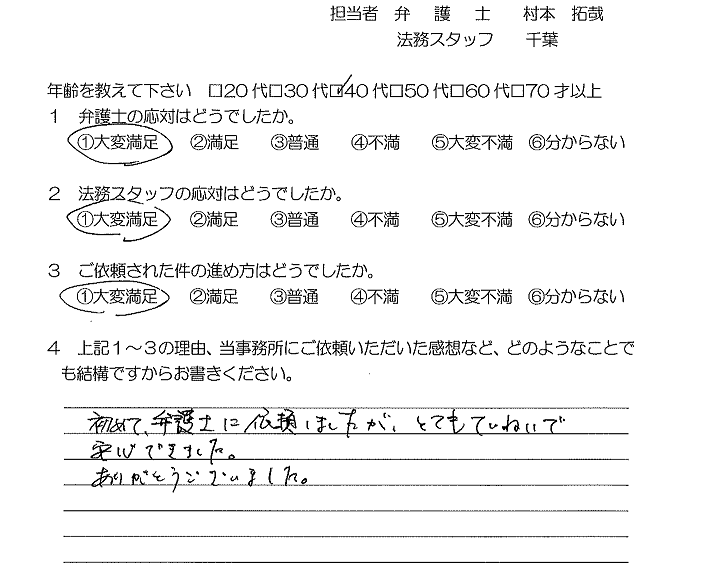 担当者 弁 護 士 村本 拓哉
法務スタッフ 千葉
年齢を教えて下さい □20代□30代□40代□50代□60代□70才以上
1 弁護士の応対はどうでしたか。
①大変満足 ②満足 ③普通 ④不満 ⑤大変不満 ⑥分からない
2 法務スタッフの応対はどうでしたか。
①大変満足 ②満足 ③普通 ④不満 ⑤大変不満 ⑥分からない
3 ご依頼された件の進め方はどうでしたか。
①大変満足 ②満足 ③普通 ④不満 ⑤大変不満 ⑥分からない
4 上記1~3の理由、当事務所にご依頼いただいた感想など、どのようなことで
も結構ですからお書きください。
初めて、弁護士に依頼しましたが、とてもていねいで
安心できました。
ありがとうございました。